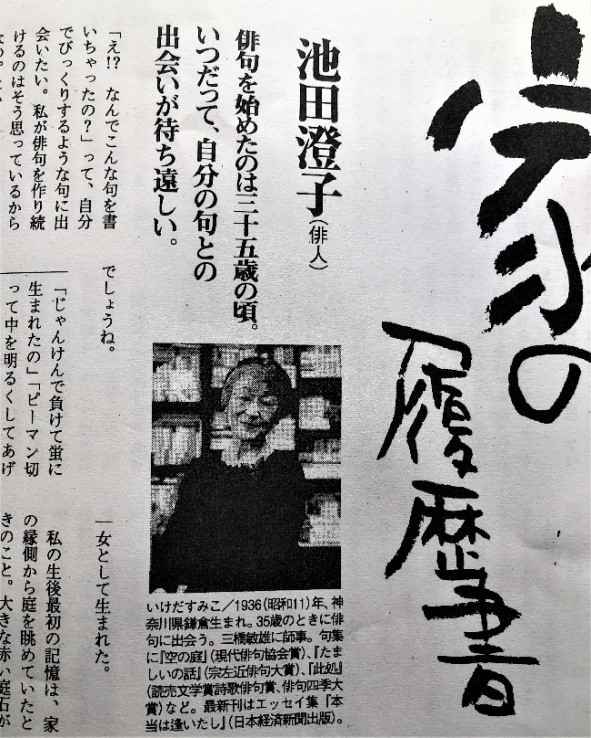 家の
履歴書
池田澄子(俳人)
俳句を始めたのは三十五歳の頃。
いつだって、自分の句との
出会いが待ち遠しい。
「え!? なんでこんな句を書
いちゃったの?」って、自分
でびっくりするような句に出
会いたい。私が俳句を作り続
けるのはそう思っているから
でしょうね。
「じゃんけんで負けて蛍に
生まれたの」「ピーマン切
って中を明るくしてあげ
一女として生まれた。
私の生後最初の記憶は、家
の縁側から庭を眺めていたと
きのこと。大きな赤い庭石が
いけだすみこ/1936(昭和11)年、神
奈川県鎌倉生まれ。35歳のときに俳
句に出会う。三橋敏雄に師事。句集
に『空の庭』(現代俳句協会賞)、『たま
しいの話』(宗左近俳句大賞)、『此処』
(読売文学賞詩歌俳句賞、俳句四季大
賞)など。最新刊はエッセイ集『本
当は逢いたし』(日本経済新聞出版)。